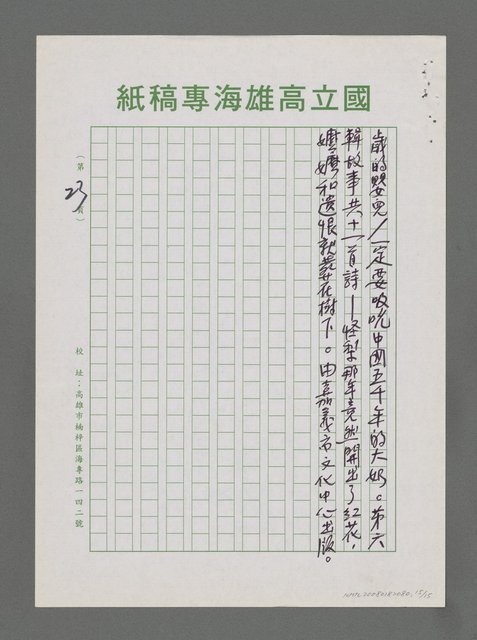 國立高雄海專稿紙
歲的嬰兒/一定要吸吮中國五千年的大奶。第六
輯故事共十一首詩—怪梨那年竟然開出了紅花,
嬤嬤和遺恨就葬在樹下。由嘉義市文化中心出版。
(第23頁)
校址:高雄市楠梓區海專路一四二號
NMTL20080180080, 15/15